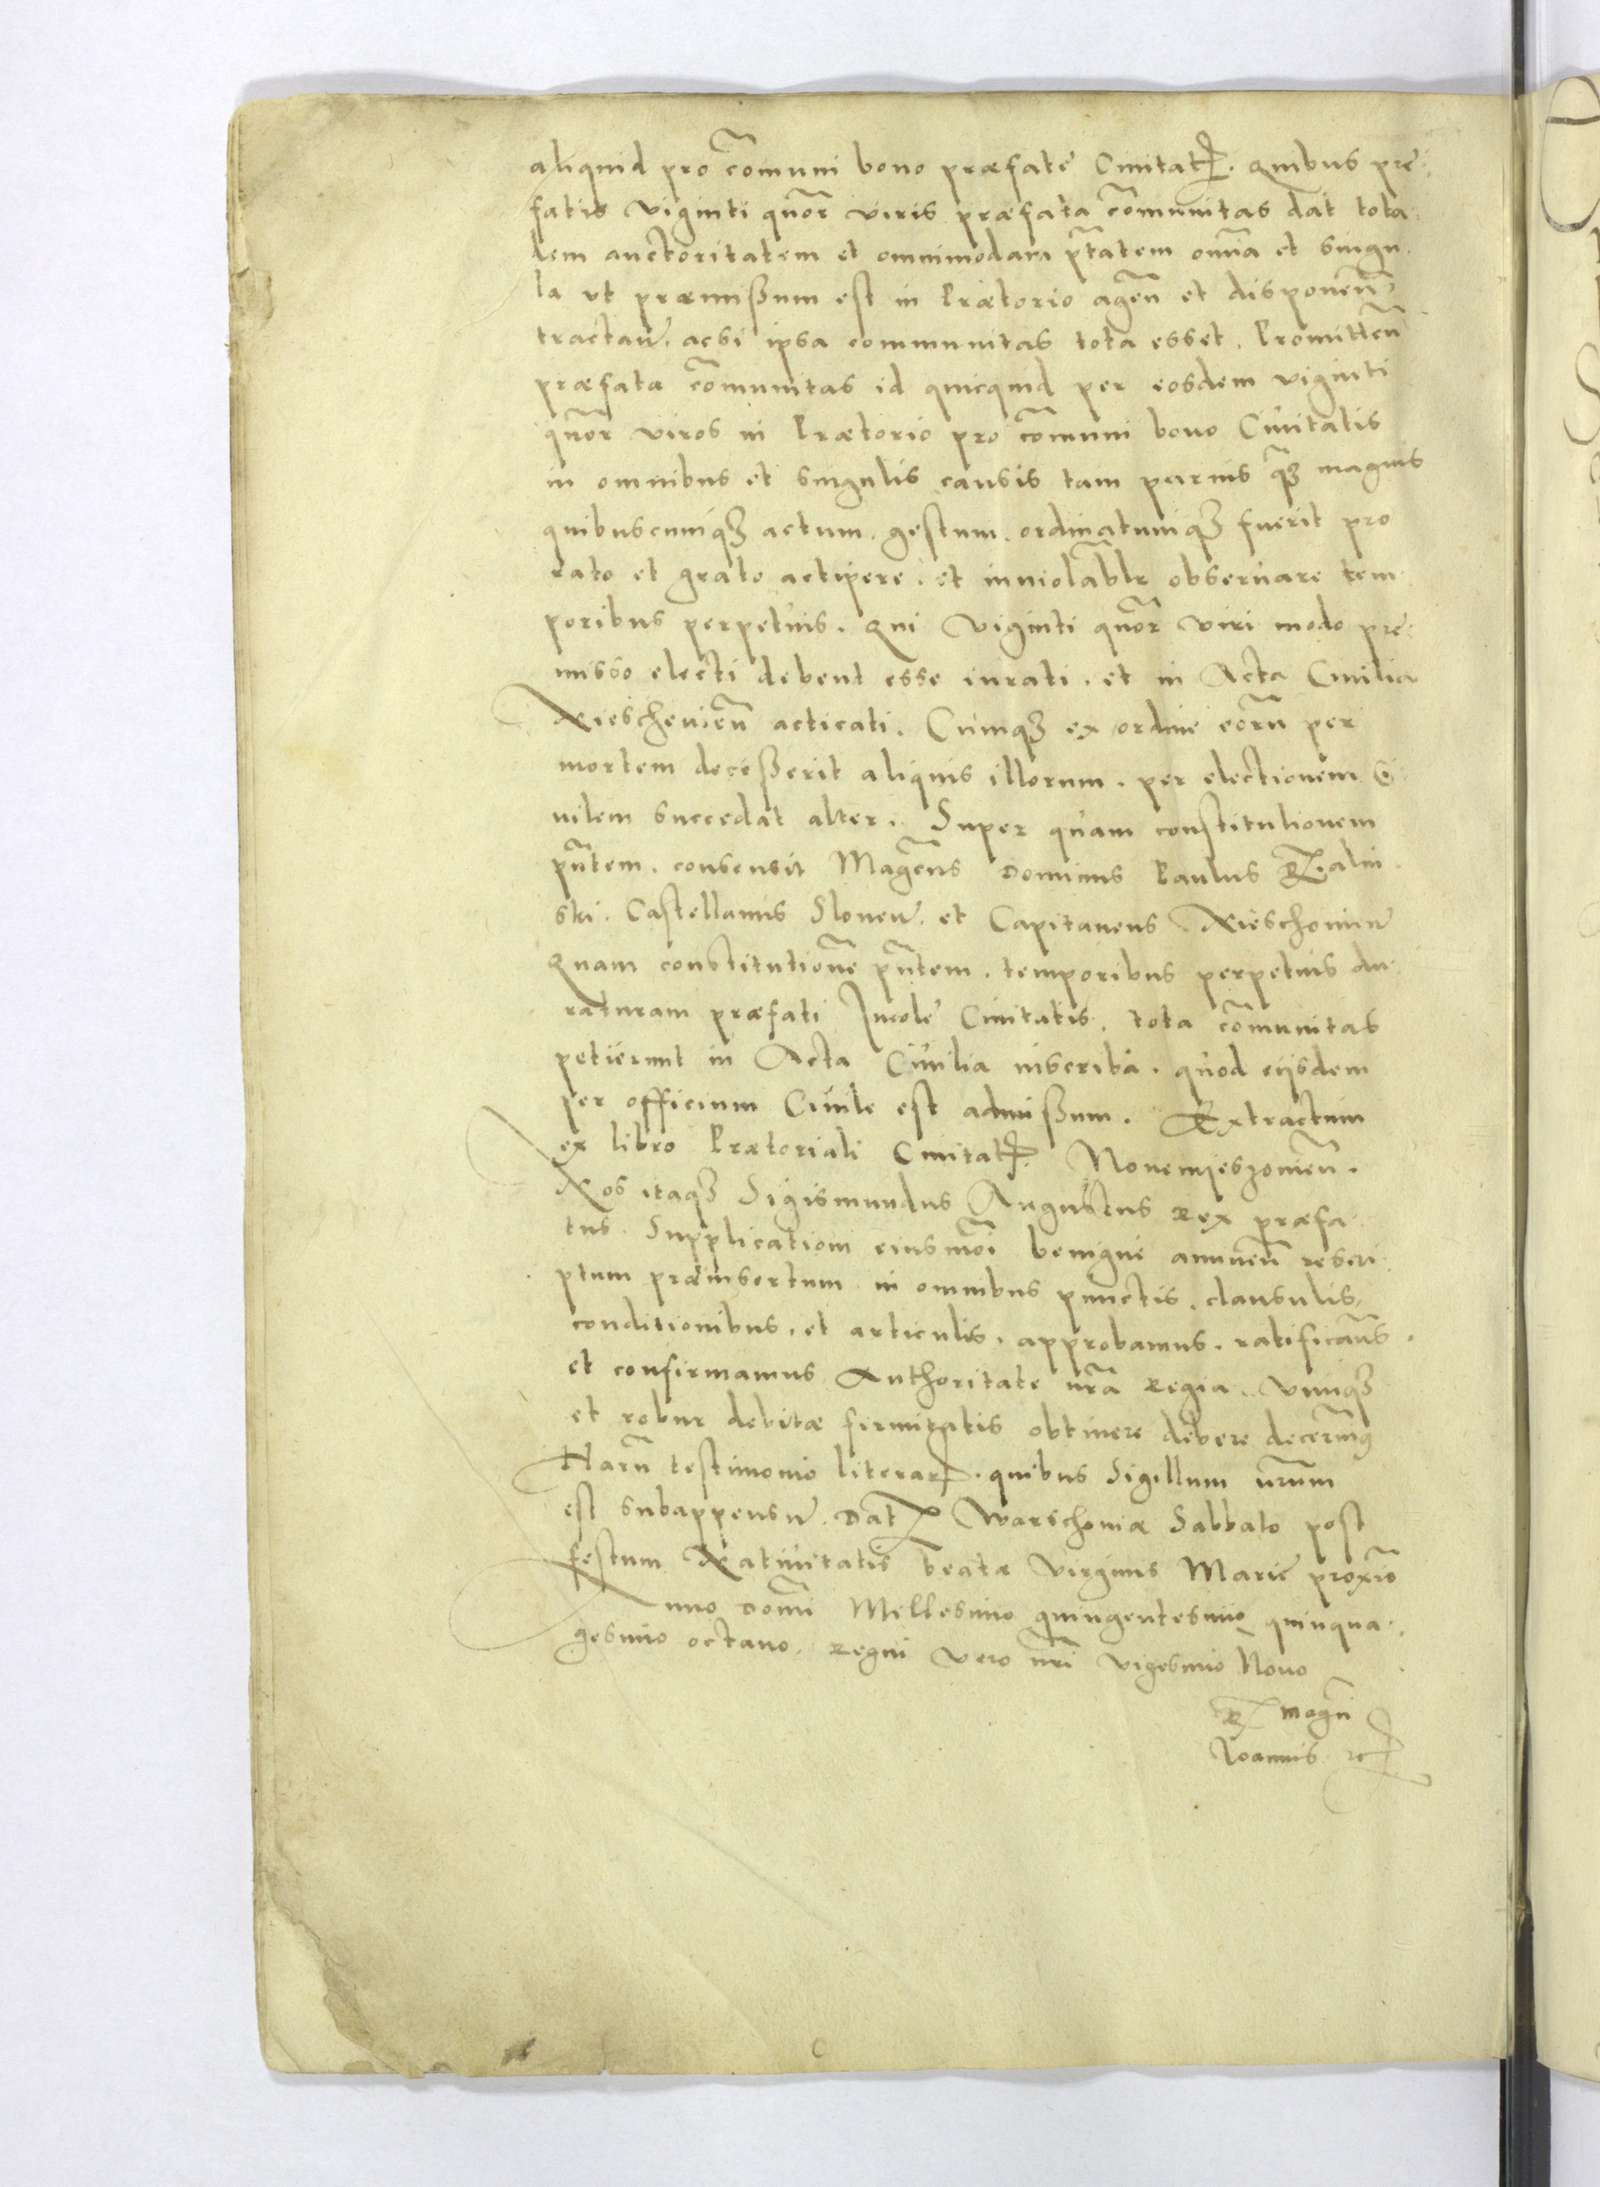 aliquid pro com̃uni bono præfatę Ciuitat(is). Quibus prę
fatis viginti quõr viris præfata com̃unitas dat tota
lem auctoritatem et omnimodam ptãtem om̃ia et singu
la vt præmißum est in Prætorio ageñ et disponeñ
tractañ. acsi ipsa communitas tota esset. Promitteñ
præfata com̃unitas id quicquid per eosdem viginti
quõr viros in Prætorio pro com̃uni bono Ciuitatis
in omnibus et singulis causis tam paruis q̃ꝫ magnis
quibuscumqꝫ actum. gestum. ordinatumqꝫ fuerit pro
rato et grato accipere. et inuiolablr̃ obseruare tem
poribus perpetuis. Qui viginti quõr viri modo prę
misso electi debent esse iurati. et in Acta Ciuilia
Nieschevieñ acticati. Cumqꝫ ex ordine eorũ per
mortem deceßerit aliquis illorum. per electionem Ci
uilem succedat alter. Super quam constitutionem
pñtem. consensit Magcũs Dominus Paulus Dzialin
ski. Castellanus Sloneñ. et Capitaneus Nieschouieñ
Quam constitutionẽ pñtem. temporibus perpetuis du
raturam præfati Incolę Ciuitatis. tota com̃unitas
petierunt in Acta Ciuilia inscribi. quod eijsdem
per officium Ciuile est admißum. Extractum
ex libro Prætoriali Ciuitat(is) Novemieszovieñ.
Nos itaqꝫ Sigismundus Augustus Rex præfa
tus. Supplicationi eiusmõi benigne annueñ rescri
ptum præinsertum in omnibus punctis. clausulis.
conditionibus. et articulis. approbamus. ratificam̃s.
et confirmamus Authoritate nrã Regia. vimqꝫ
et robur debitæ firmitatis obtinere debere decernim9
Harũ testimonio literar(um). quibus Sigillum nrũm
est subappensũ. Dat(um) Warschouiæ Sabbato post
festum Natiuitatis beatæ Virginis Marię proxĩo
Anno Domĩ Millesimo quingentesimo quinqua
gesimo octauo. Regni vero nrĩ vigesimo Nono
Joannis